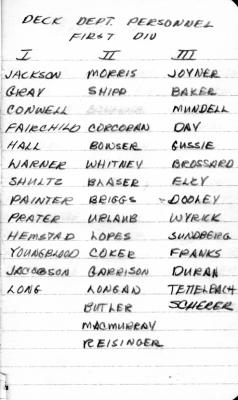 DECK DEPT. PERSONNEL
FIRST DIV
I II III
JACKSON MORRIS JOYNER
GRAY SHIPP BAKER
CONWELL MUNDELL
FAIRCHILD CORCORAN DAY
HALL BOWSER GUSSIE
WARNER WHITNEY BROSSARD
SHULTZ BLASER ELEY
PAINTER BRIGGS DOOLEY
PRATER URLAUB WYRICK
HEMSTAD LOPES SUNDBERG
YOUNGBLOOD COKER FRANKS
JACOBSON GARRISON DURAN
LONG LONGAN TETTELBACH
BUTLER SCHERER
MACMURRAY
REISINGER